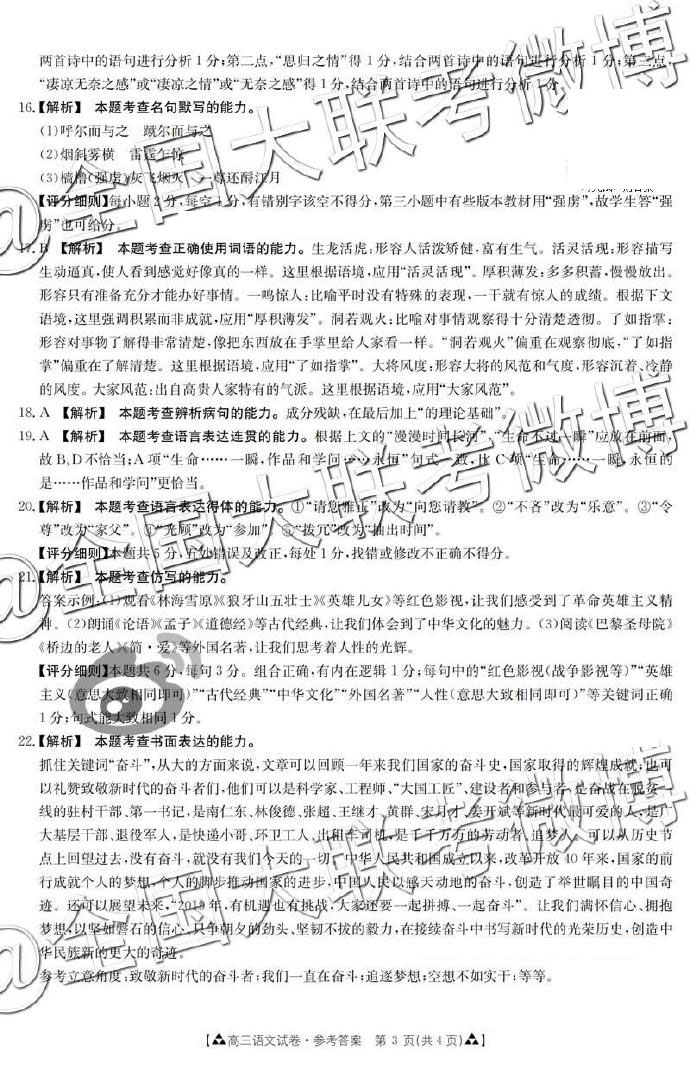 两首诗中的语句进行分析1分;第二点,“思归之情”得1分,结合两首诗中的语句进行分析1分;第三点,
“凄凉无奈之感”或“凄凉之情”或“无奈之感”得1分,结合两首诗中的语句进行分析1分。
16.【解析】 本题考查名句默写的能力。
(1)呼尔而与之 蹴尔而与之
(2)烟斜雾横 雷霆乍惊
(3)樯橹(强虏)灰飞烟灭 一尊还酹江月
【评分细则】每小题2分,每空1分,有错别字该空不得分,第三小题中有些版本教材用“强虏”,故学生答“强
虏”也可给分。
17.B 【解析】 本题考查正确使用词语的能力。生龙活虎:形容人活泼矫健,富有生气。活灵活现:形容描写
生动逼真,使人看到感觉好像真的一样。这里根据语境,应用“活灵活现”。厚积薄发:多多积蓄,慢慢放出。
形容只有准备充分才能办好事情。一鸣惊人:比喻平时没有特殊的表现,一干就有惊人的成绩。根据下文
语境,这里强调积累而非成就,应用“厚积薄发”。洞若观火:比喻对事情观察得十分清楚透彻。了如指掌:
形容对事物了解得非常清楚,像把东西放在手掌里给人家看一样。“洞若观火”偏重在观察彻底,“了如指
掌”偏重在了解清楚。这里根据语境,应用“了如指掌”。大将风度:形容大将的风范和气度,形容沉着、冷静
的风度。大家风范:出自高贵人家特有的气派。这里根据语境,应用“大家风范”。
18.A 【解析】 本题考查辨析病句的能力。成分残缺,在最后加上“的理论基础”。
19.A 【解析】 本题考查语言表达连贯的能力。根据上文的“漫漫时间长河”,“生命不过一瞬”应放在前面,
故B、D不恰当;A项“生命……一瞬,作品和学问……永恒”句式一致,比C项“生命……一瞬,永恒的
是……作品和学问”更恰当。
20.【解析】 本题考查语言表达得体的能力。①“请您雅正”改为“向您请教”。②“不吝”改为“乐意”。③“令
尊”改为“家父”。④“光顾”改为“参加”。⑤“拨冗”改为“抽出时间”。
【评分细则】本题共5分,五处错误及改正,每处1分,找错或修改不正确不得分。
21.【解析】 本题考查仿写的能力。
答案示例:(1)观看《林海雪原》《狼牙山五壮士》《英雄儿女》等红色影视,让我们感受到了革命英雄主义精
神。(2)朗诵《论语》《孟子》《道德经》等古代经典,让我们体会到了中华文化的魅力。(3)阅读《巴黎圣母院》
《桥边的老人》《简·爱》等外国名著,让我们思考着人性的光辉。
【评分细则】本题共6分,每句3分。组合正确,有内在逻辑1分;每句中的“红色影视(战争影视等)”“英雄
主义(意思大致相同即可)”“古代经典”“中华文化”“外国名著”“人性(意思大致相同即可)”等关键词正确
1分;句式能大致相同1分。
22.【解析】 本题考查书面表达的能力。
抓住关键词“奋斗”,从大的方面来说,文章可以回顾一年来我们国家的奋斗史,国家取得的辉煌成就;也可
以礼赞致敬新时代的奋斗者们,他们可以是科学家、工程师、“大国工匠”、建设者和参与者,是奋战在脱贫一
线的驻村干部、第一书记,是南仁东、林俊德、张超、王继才、黄群、宋月才、姜开斌等新时代最可爱的人,是广
大基层干部、退役军人,是快递小哥、环卫工人、出租车司机,是千千万万的劳动者、追梦人。可以从历史节
点上回望过去,没有奋斗,就没有我们今天的一切。中华人民共和国成立以来,改革开放40年来,国家的前
行成就个人的梦想,个人的脚步推动国家的进步,中国人民以感天动地的奋斗,创造了举世瞩目的中国奇
迹。还可以展望未来,“2019年,有机遇也有挑战,大家还要一起拼搏、一起奋斗”。让我们满怀信心、拥抱
梦想,以坚如磐石的信心、只争朝夕的劲头、坚韧不拔的毅力,在接续奋斗中书写新时代的光荣历史,创造中
华民族新的更大的奇迹。
参考立意角度:致敬新时代的奋斗者;我们一直在奋斗;追逐梦想;空想不如实干;等等。
【高三语文试卷·参考答案 第3页(共4页)】
@全国大联考微博
@全国大联考微博
@全国大联考微博